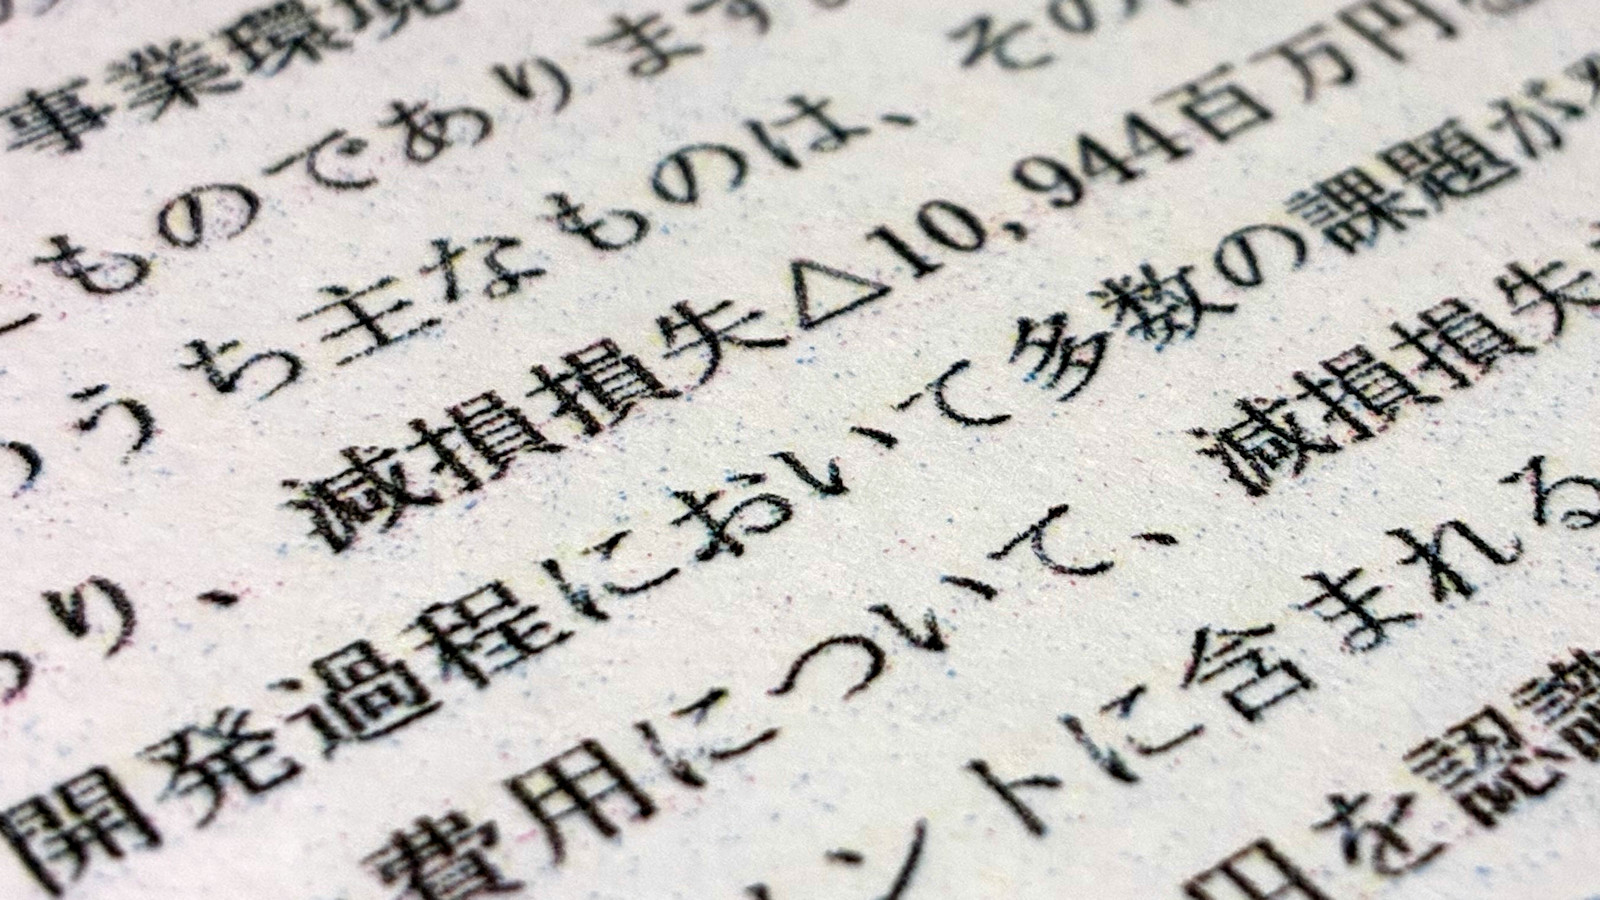 事業環境
ものであります。 その
うち主なものは、
減損損失△10,944百万円
り、 開発過程において多数の課題が
費用について、 減損損失
ントに含まれる
円を認識